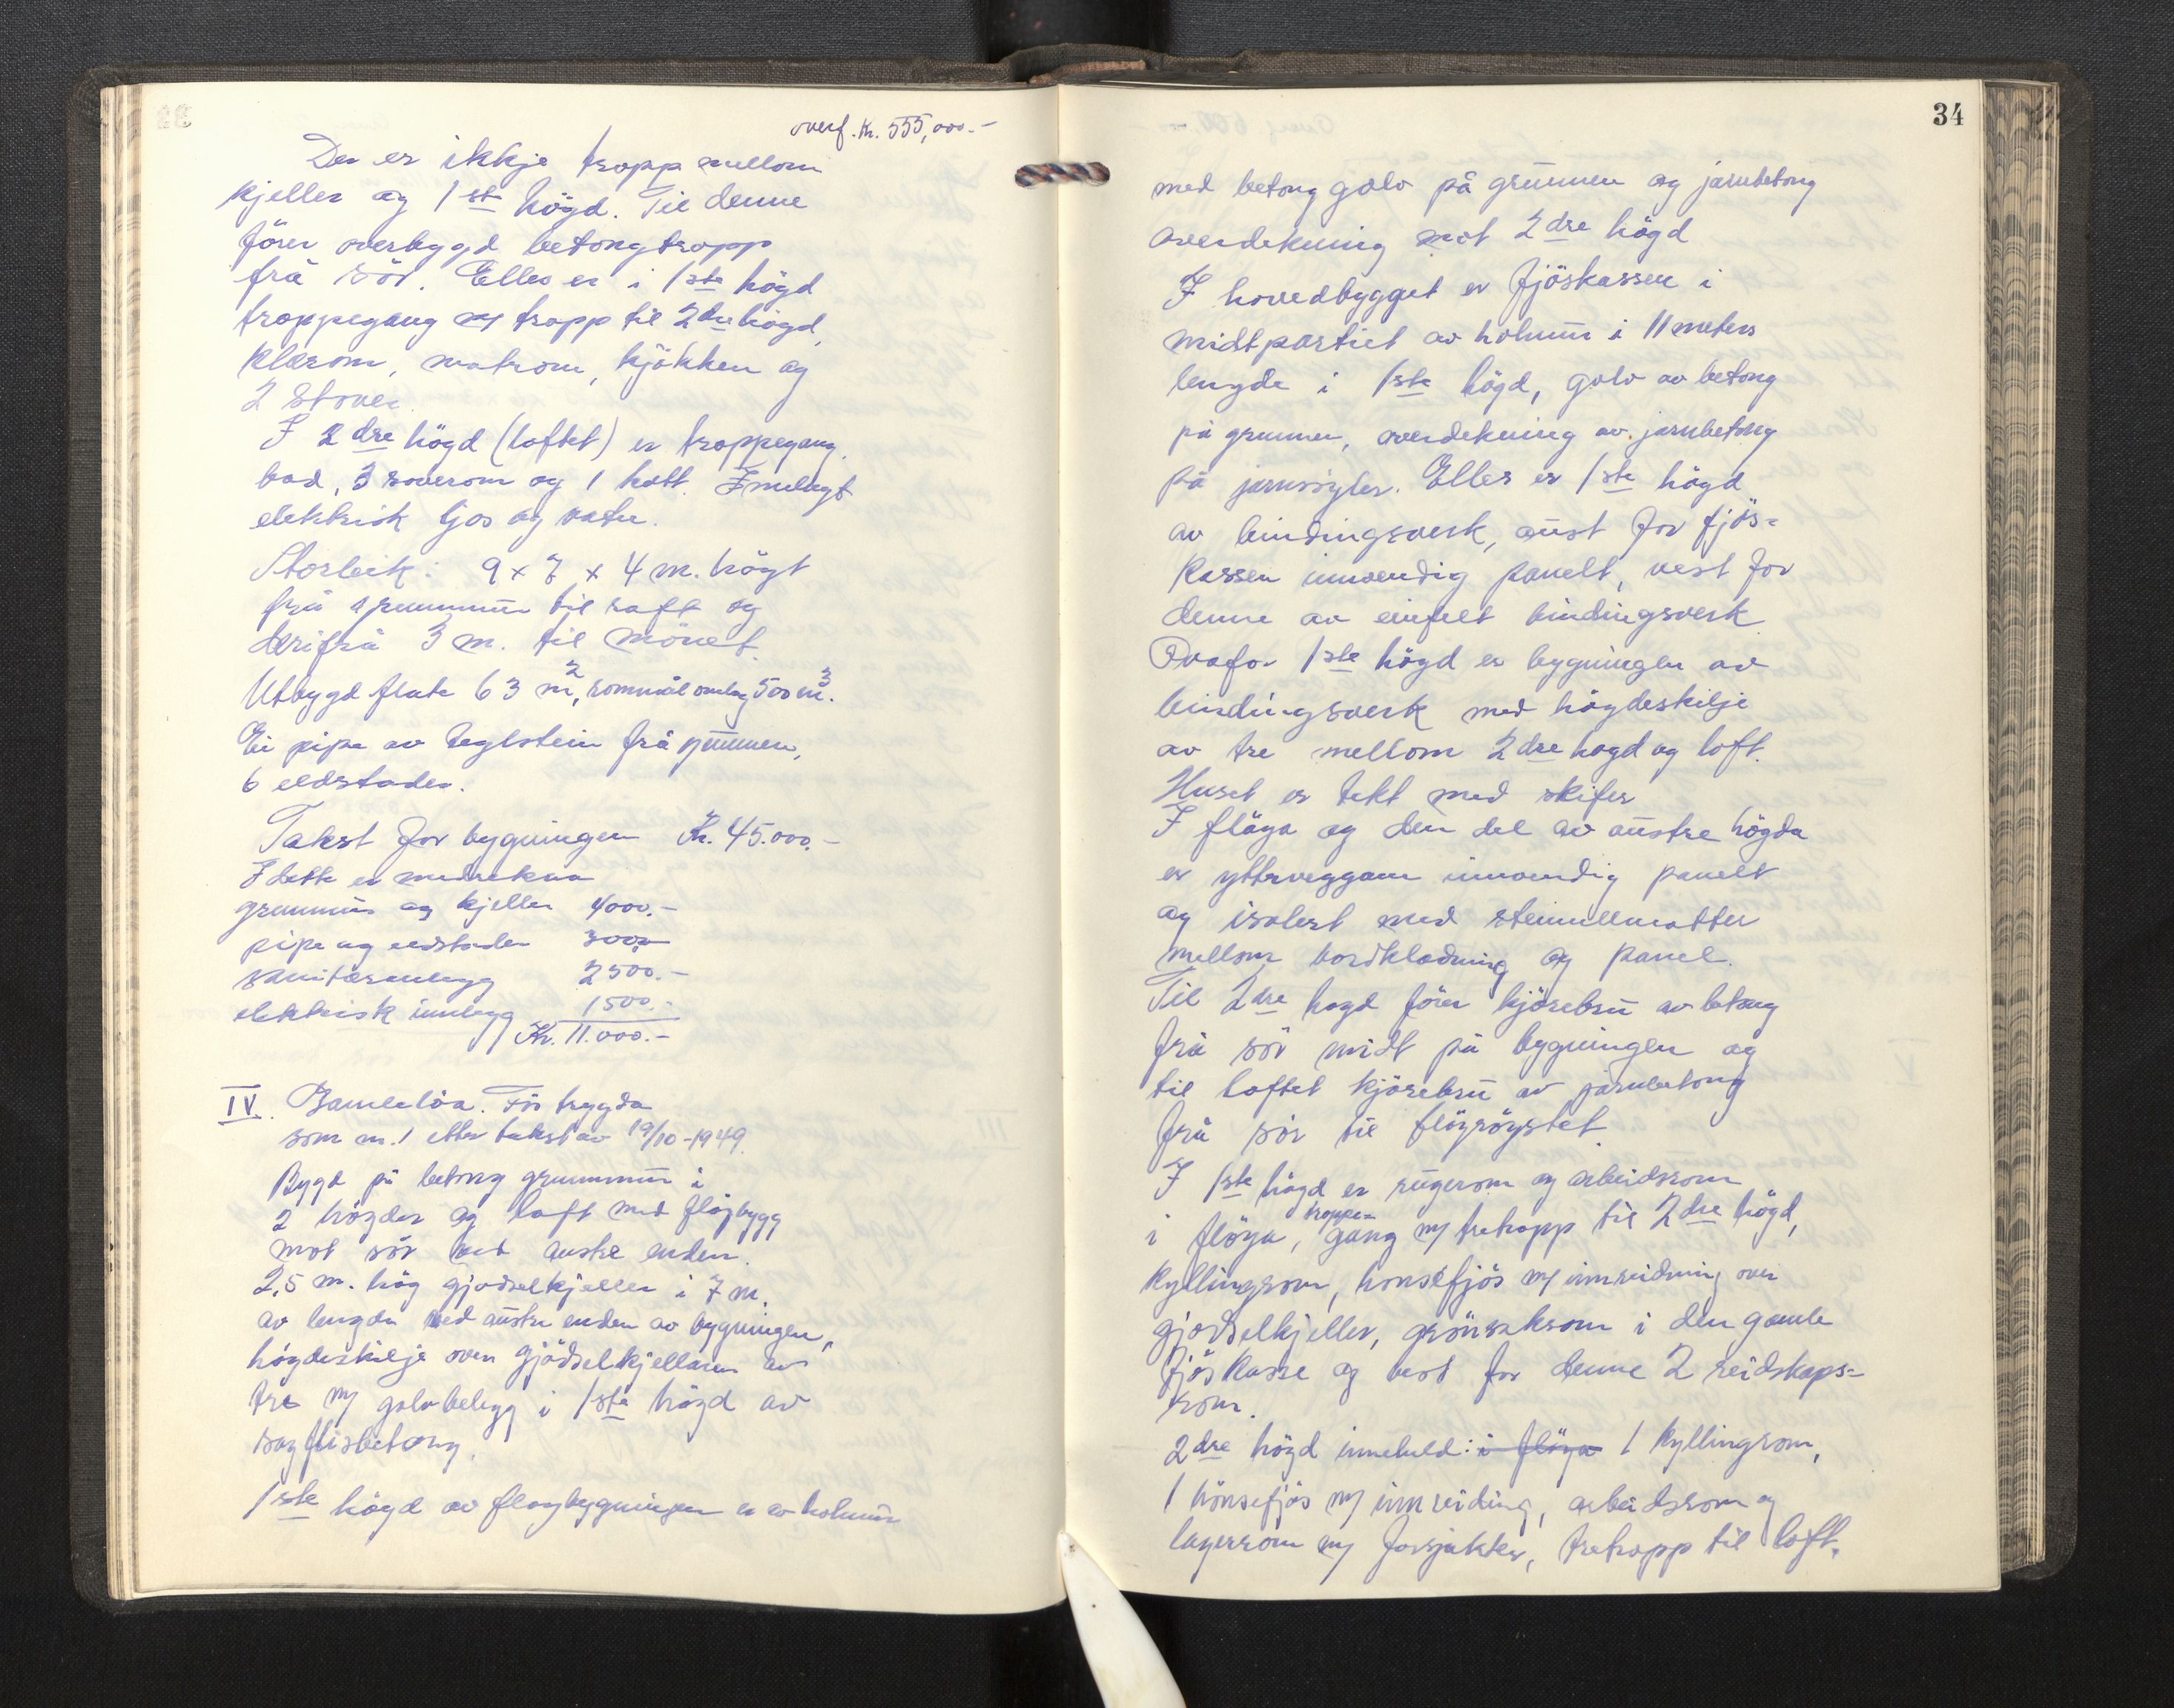 overf. Kr. 555,000.-
Der er ikkje tropp mellom
kjeller og 1ste högd. Til denne
förer overbygd betongtropp
frå sör. Elles er i 1ste högd
troppegang m/ tropp til 2dre högd,
klerom, matrom, kjökken og
2 stover.
I 2dre högd (loftet) er troppegang,
bad, 3 soverom og 1 kott. Innlagt
elektrisk ljos og vatn.
Storleik: 9 x 7 x 4 m. högt
frå grunnmur til raft og
derifrå 3 m. til mönet.
Utbygd flate 63 m2, rommål omlag 500 m3.
Ei pipe av teglstein frå grunnen,
6 eldstader.
Takst for bygningen Kr. 45.000.-
I dette er medrekna
grunnmur og kjeller 4000.-
pipe og eldstader 3000.-
sanitæranlegg 2500.-
elektrisk innlegg 1500.-
Kr. 11.000.-
IV. Gamlelöa. Før trygda
som nr. 1 etter takst av 19/10-1949.
Bygd på betong grunnmur i
2 högder og loft med flöybygg
mot sör ved austre enden.
2,5 m. hög gjödselkjeller i 7 m.
av lengda ved austre enden av bygningen,
högdeskilje over gjödselkjellaren av
tre m/ golvbelegg i 1ste högd av
sagflisbetong.
1ste högd av flöybygningen er av holmur
34
med betong golv på grunnen og jarnbetong
overdekning mot 2dre högd
I hovedbygget er fjöskassen i
midtpartiet av holmur i 11 meters
lengde i 1ste högd, golv av betong
på grunnen, overdekning av jarnbetong
på jarnsöyler. Elles er 1ste högd
av bindingsverk, aust for fjös-
kassen innvendig panelt, vest for
denne av einfelt bindingsverk
Ovafor 1ste högd er bygningen av
bindingsverk med högdeskilje
av tre mellom 2dre högd og loft.
Huset er tekt med skifer
I flöya og den del av austre högda
er ytterveggane innvendig panelt
og isolert med steinullmatter
mellom bordkledning og panel.
Til 2dre högd förer kjörebru av betong
frå sör midt på bygningen og
til loftet kjörebru av jarnbetong
frå sör til flöyröystet.
I 1ste högd er rugerom og arbeidsrom
i flöya, troppegang m/ tretropp til 2dre högd,
kyllingrom, hönsefjös m/ innreidning over
gjödselkjeller, grönsaksrom i den gamle
fjöskasse og vest for denne 2 reidskaps-
rom.
2dre högd inneheld: i flöya 1 kyllingrom,
1 hönsefjös m/ innreiding, arbeidsrom og
lagerrom m/ forsjakter, tretropp til loft.